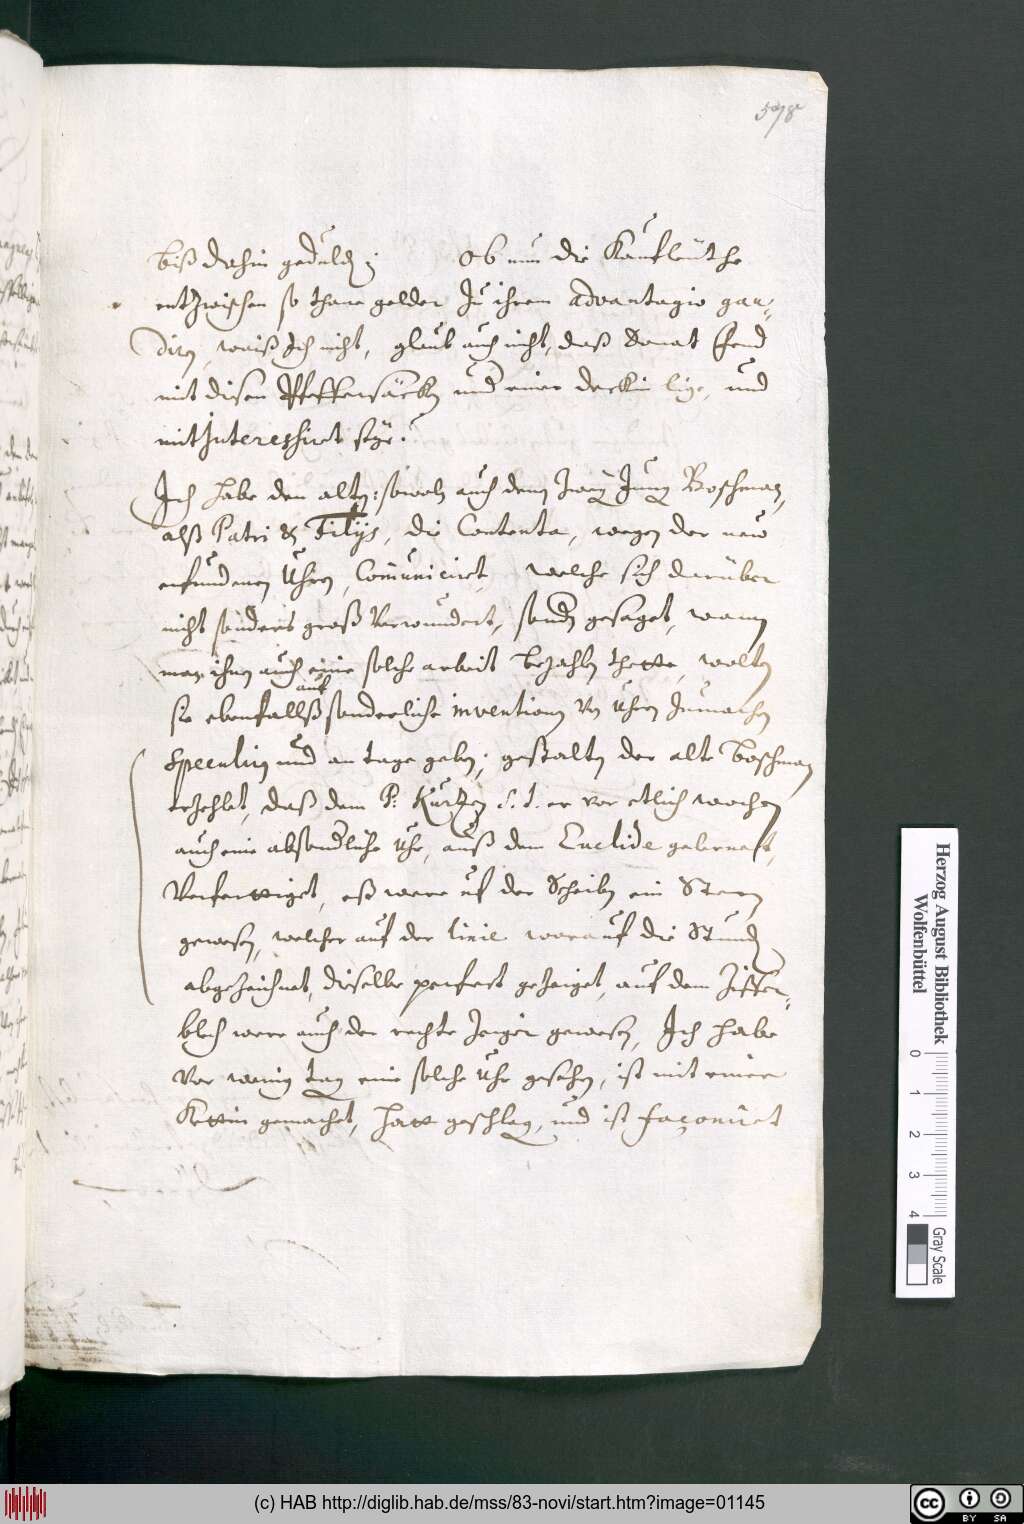 578r
biß dahin geduld; Ob nun die Kaufleüthe
entzwischen so thane gelder zu ihrem advantagio gau-
diren, waiß Ich nicht, glaub auch nicht, daß Donat Fend
mit disen Pfeffersäcken und einer deckin lige, und
mitInteressirt seye.
Ich habe den alten: sowoln auch denen zway Jung Boschman,
alß Patri & Filijs, die Contenta, wegen der new
erfundenen Uhren, Com̄unicirt, welche sich darüber
nicht sonders groß Verwundert, sondern gesaget, wann
man ihnen auch eine solche arbeit bezahlen thette, wolten
auf
sie ebenfallß sonderliche inventionen von Uhren zumachen
speculirn und an tage geben; gestalten der alte Boschman
erzehlet, daß dem P: Kurtzen S. J. er vor etlich wochen
auch eine absonderliche Uhr, auß dem Euclide gelernet,
Verferttiget, eß were uf der Scheiben ein Stern
gewesen, welcher auf der linie worauf die Stunden
abgezeichnet, dieselbe perfect gezeiget, auf dem Ziffer-
blech were auch der rechte Zeiger gewesen, Ich habe
Vor wenig tagen eine solche Uhr gesehen, ist mit einer
Kettin gemachet, hatt geschlagen, und ist façonirt
Herzog August Bibliothek
Wolfenbüttel
0 1 2 3 4
Gray Scale
(c) HAB http://diglib.hab.de/mss/83-novi/start.htm?image=01145
cc BY SA